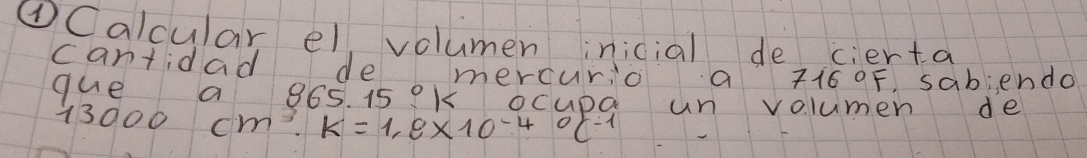 ① Calcular el volumen inicial de cierta
cantidad de mercurio a 716 °F. sabiendo
que a 865.15 °K ocupa un volumen de
13000 cm³. K = 1,8 x 10⁻⁴ °C⁻¹